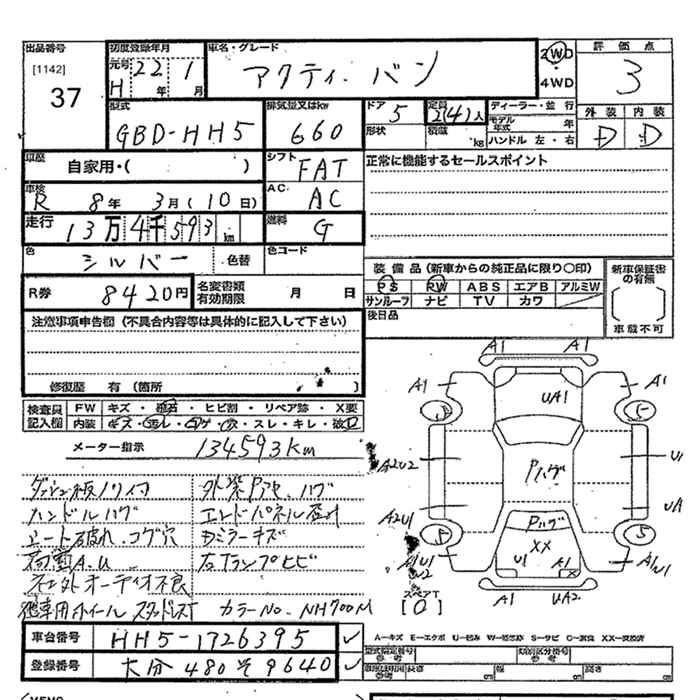 出品番号 初度登録年月 車名・グレード 2WD 評価点
[1142] 元号 H 22年 1月 アクティ・バン 4WD 3
37
型式 排気量又はkw ドア 5 定員 2(4)人 ディーラー・並行 外装 内装
GBD-HH5 660 形状 積載 kg モデル年式 年 D D
ハンドル 左・右
車歴 自家用・( ) シフト FAT 正常に機能するセールスポイント
車検 R 8年 3月(10日) AC. AC
走行 13万4千593km 燃料 G
色 シルバー 色替 色コード
装備品(新車からの純正品に限り○印) 新車保証書の有無
R券 8420円 名変書類有効期限 月 日 PS PW ABS エアB アルミW
サンルーフ ナビ TV カワ
後日品 車載不可
注意事項申告欄(不具合内容等は具体的に記入して下さい)
修復歴 有(箇所 )
検査員記入欄 FW キズ・飛石・ヒビ割・リペア跡・X要
内装 キズ・汚レ・コゲ・穴・スレ・キレ・欠品
メーター指示 134593km
ダッシュ板ノリ付 外装P色、ハゲ
ハンドルハゲ エンドパネル歪み
シート破れ、コゲ穴 右ミラーキズ
荷室A.U 右テランプヒビ
社外オーディオ不良
他車用ホイール スタッドレスT カラーNo. NH700M
A1 A1
A1 A1
UA1
A2U2 Pハゲ U1
A2U1 Pハゲ UA
XX
5 5
U1 A1 X A1U1
スペアT
[0] A1 UA2
車台番号 HH5-1726395
登録番号 大分 480 そ 9640
A-キズ E-エクボ U-凹み W-補修跡 S-サビ C-腐食 XX-交換済
型式指定番号 類別区分番号
長さ 幅 高さ